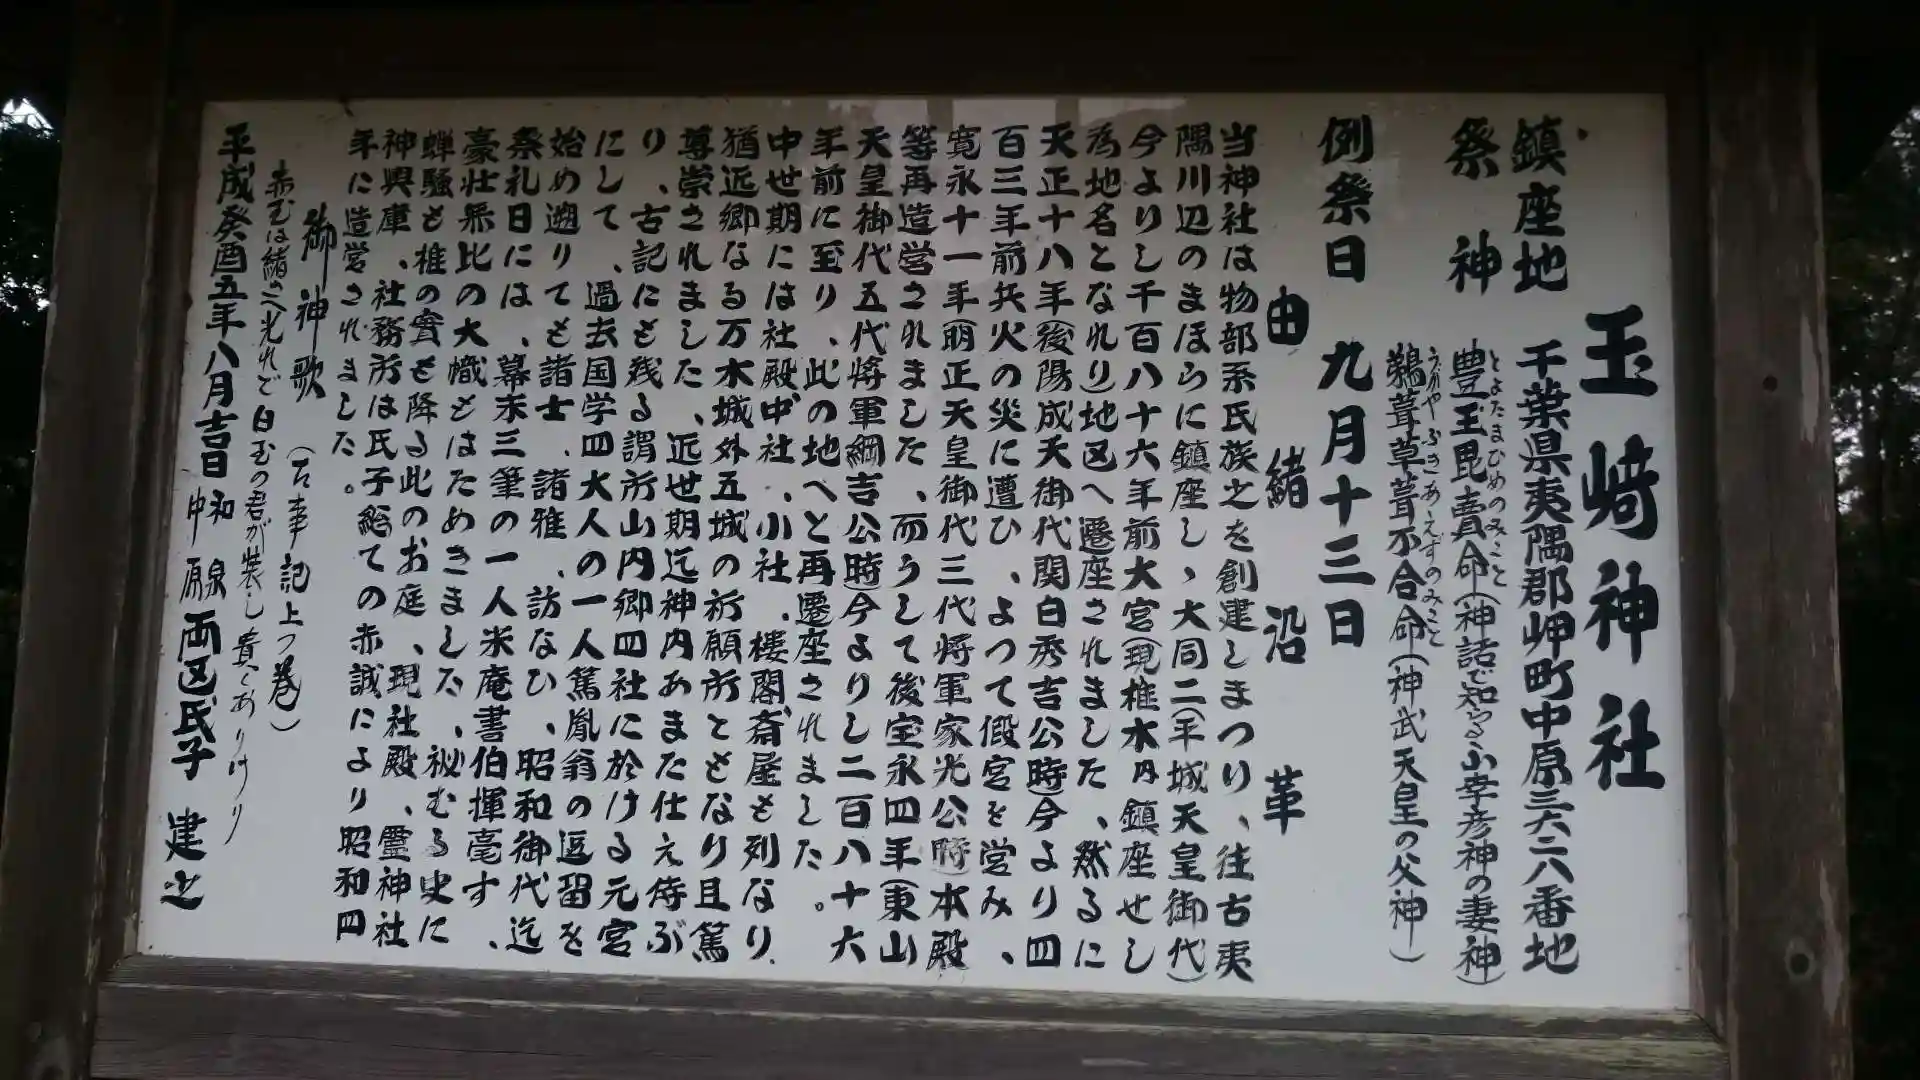 玉﨑神社
鎮座地 千葉県夷隅郡岬町中原三六二八番地
祭神 豊玉毘賣命(神話で知らる山幸彦神の妻神)
とよたまひめのみこと
鵜葺草葺不合命(神武天皇の父神)
うがやふきあえずのみこと
例祭日 九月十三日
由緒沿革
当神社は物部系氏族之を創建しまつり、往古夷
隅川辺のまほらに鎮座し、大同二(平城天皇御代)
今よりし千百八十六年前大宮(現椎木内鎮座せし
為地名となれり)地区へ遷座されました、然るに
天正十八年(後陽成天御代関白秀吉公時)今より四
百三年前兵火の災に遭ひ、よつて假宮を営み、
寛永十一年(明正天皇御代三代将軍家光公時)本殿
等再造営されました、而うして後宝永四年(東山
天皇御代五代将軍綱吉公時)今よりし二百八十六
年前に至り、此の地へと再遷座されました。
中世期には社殿中社、小社、樓閣斎屋も列なり
猶近郷なる万木城外五城の祈願所ともなり且篤
尊崇されました、近世期迄神内あまた仕え侍ぶ
り、古記にも残る謂所山内郷四社に於ける元宮
にして、過去国学四大人の一人篤胤翁の逗留を
始め遡りても諸士、諸雅、訪なひ、昭和御代迄
祭礼日には、幕末三筆の一人米庵書伯揮毫す、
豪壮無比の大幟もはためきました、秘むる史に
蝉騒も椎の實も降る此のお庭、現社殿、霊神社
神輿庫、社務所は氏子総ての赤誠により昭和四
年に造営されました。
御神歌 (古事記上つ巻)
赤玉は緒さへ光れで白玉の君が装し貴くありけり
平成癸酉五年八月吉日 和泉 中原 両区氏子 建之